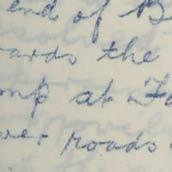 end of B
ards the
mp at Fo
ver roads